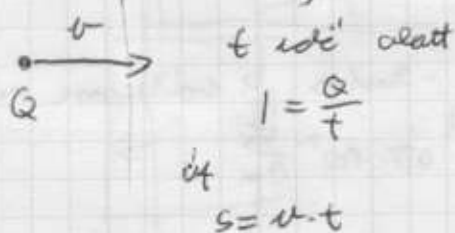 v
t idő alatt
Q
I = Q/t
út
s = v · t